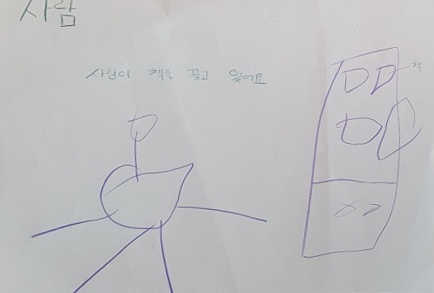 사람
사람이 책을 꽂고 있어요
책